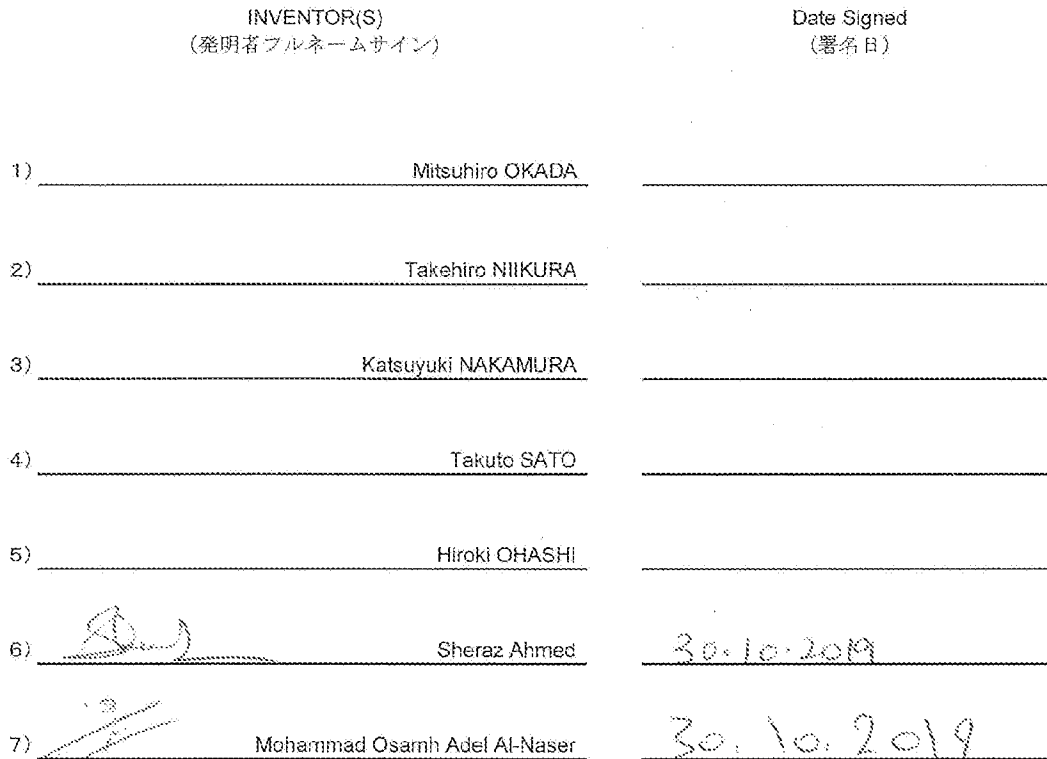 INVENTOR(S) Date Signed
(発明者フルネームサイン) (署名日)
1) Mitsuhiro OKADA
2) Takehiro NIIKURA
3) Katsuyuki NAKAMURA
4) Takuto SATO
5) Hiroki OHASHI
6) Sheraz Ahmed 30.10.2019
7) Mohammad Osamh Adel Al-Naser 30.10.2019